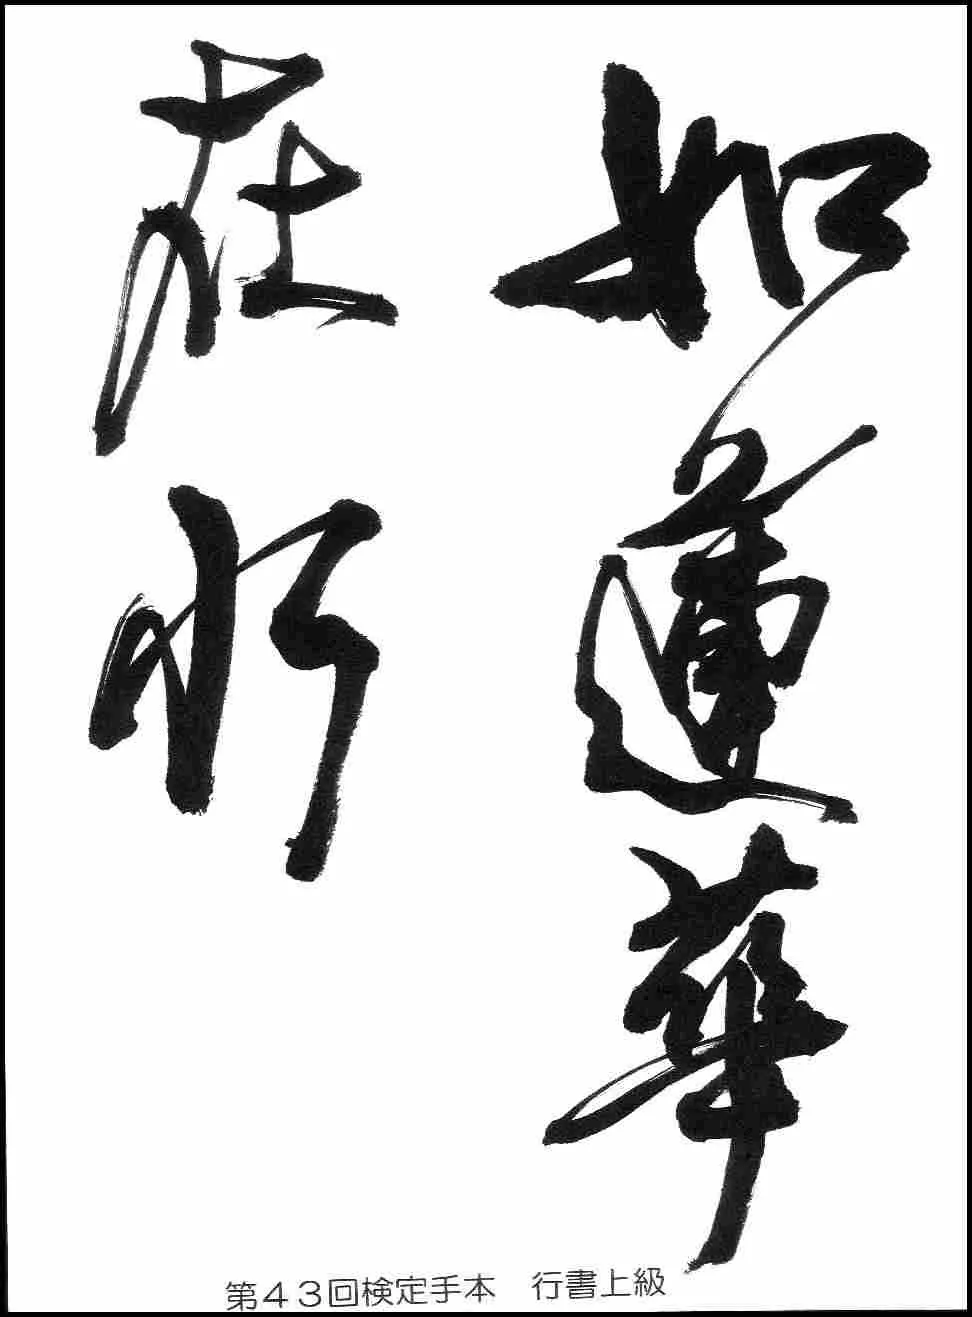 如蓮華
在水
第４３回検定手本　行書上級